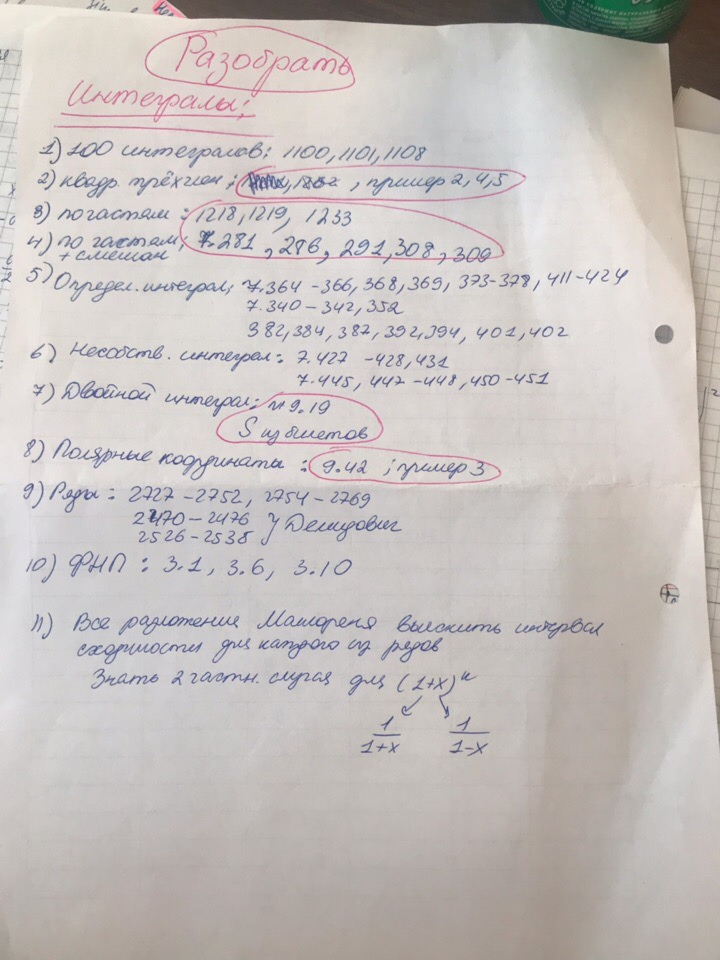 Разобрать
Интегралы;
1) 100 интегралов: 1100, 1101, 1108
2) квадр. трёхчлен: , пример 2, 4, 5
3) по частям: 1218, 1219, 1233
4) по частям; 7.281, 286, 291, 308, 309
+ смешан
5) Определ. интеграл; 7.364 - 366, 368, 369, 373-378, 411-424
7.340 - 342, 352
382, 384, 387, 392, 394, 401, 402
6) Несобств. интеграл: 7.427 - 428, 431
7.445, 447 - 448, 450 - 451
7) Двойной интеграл: № 9.19
S из билетов
8) Полярные координаты: 9.42; пример 3
9) Ряды: 2727 - 2752, 2754 - 2769
2470 - 2476 } Демидович
2526 - 2538
10) ФНП: 3.1, 3.6, 3.10
11) Все разложения Маклорена выяснить интервал
сходимости для каждого из рядов
Знать 2 частн. случая для (1+x)ⁿ
1/1+x 1/1-x